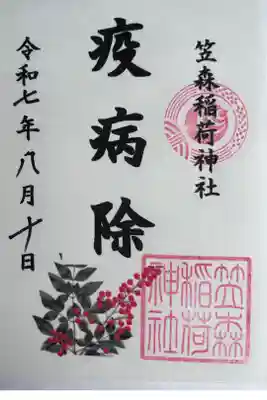 笠森稲荷神社
疫病除
令和七年八月十日
笠森
稲荷
神社